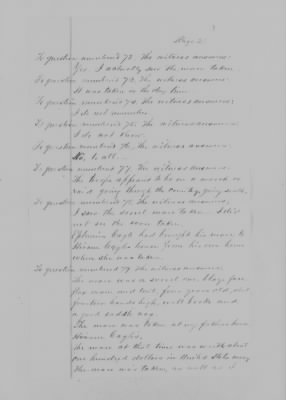 Page 2.
To question numbered 72. the witness answers:
Yes. I actually saw the mare taken
To question numbered 73. the witness answers:
It was taken in the day time
To question numbered 74. the witness answers:
I do not remember
To question numbered 75. the witness answers:
I do not know.
To question numbered 76. the witness answers:
No, to all.
To question numbered 77. the witness answers:
The troops appeared to be on a march or
raid going through the country, going south.
To question numbered 78. the witness answers:
I saw the sorrel mare taken. I did
not see the corn taken.
Cagle had brought his mare to
Hiram Cagle's house from his own home
when she was taken.
To question numbered 79. the witness answers:
The mare was a sorrel one, blaze face
fox mare and trot, four years old, about
fourteen hands high, well broke and
a good saddle nag.
The mare was taken at my fathers house
Hiram Cagles,
the mare at that time was worth about
one hundred dollars in United States money
the mare was taken, as well as I